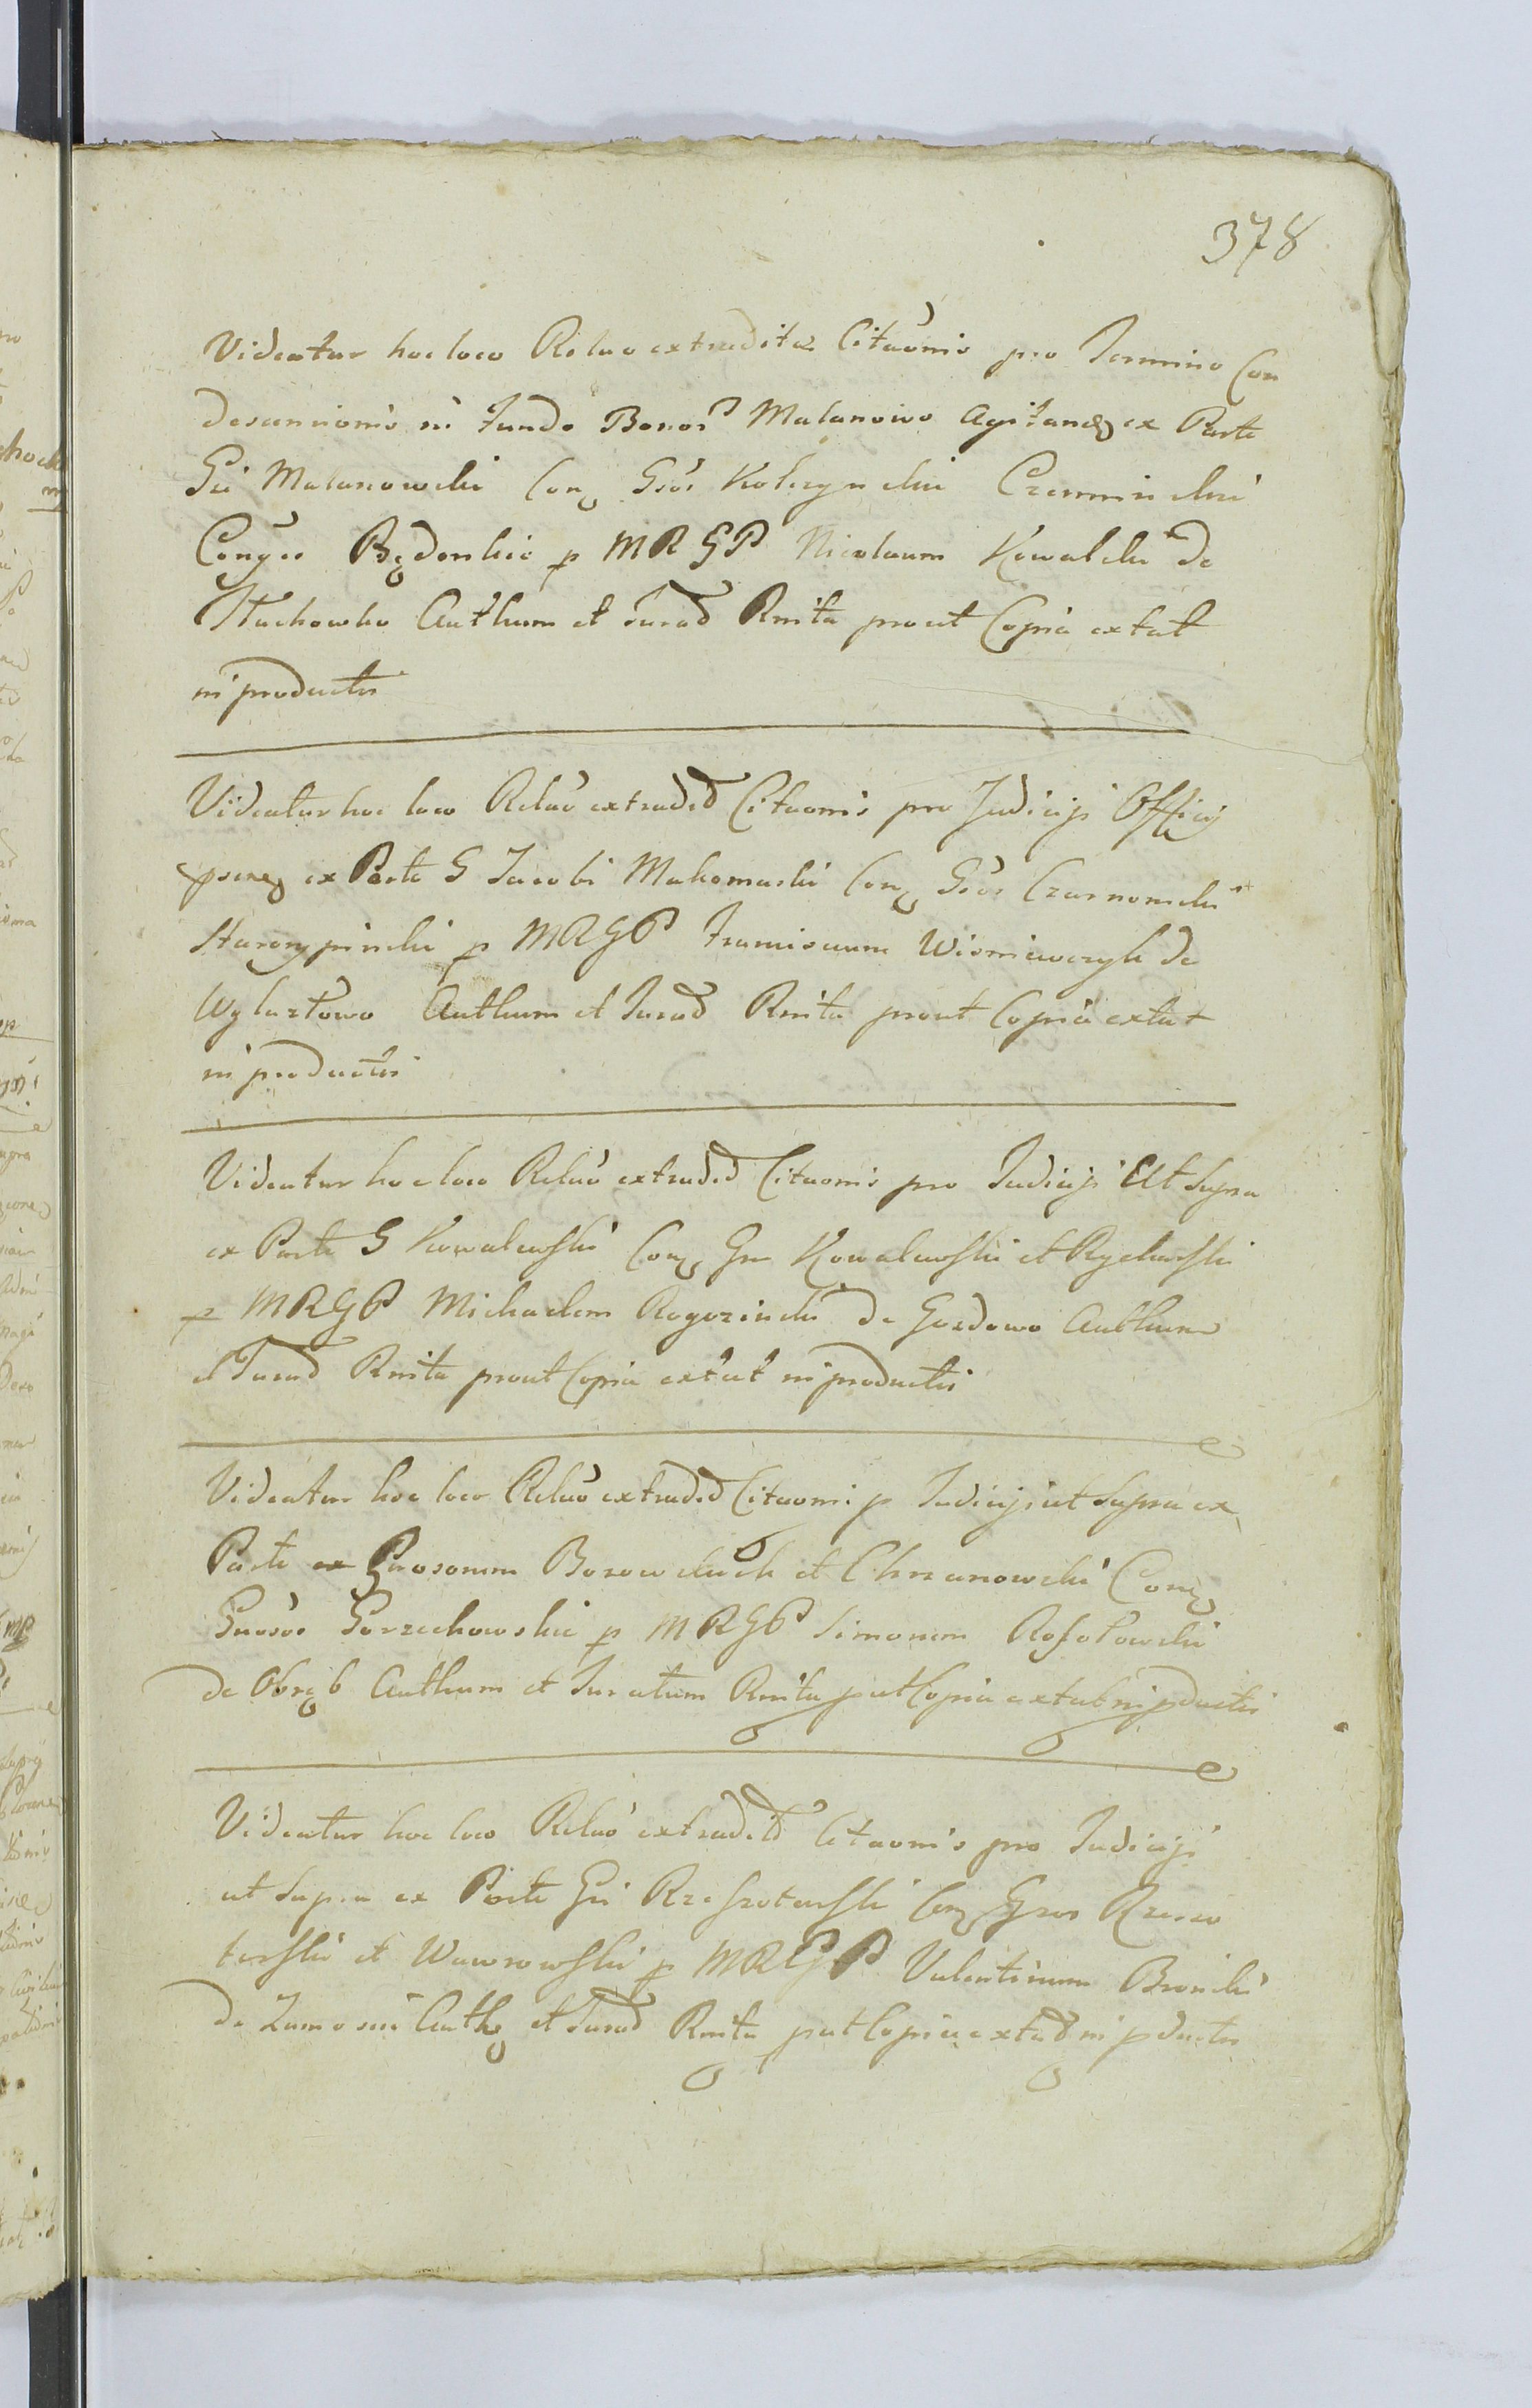 378
Videatur hoc loco Relaõ extraditæ Citaõnis pro Termino Con
descensionis in Fundo Bonor Malanowo Agitand ex Parte
Gñi Malanowski Con Gsos Kolczynski Czerminski
Congeo Będorskie p MRGP Nicolaum Kowalski de
Stuchowko Authum et Jurad Rnita prout Copia extat
in productis
Videatur hoc loco Relaõ extradid Citaonis pro Judicijs Officij
psene ex Parte G Jacobi Makomaski Con Gsos Czarnomski
Staroxypinski p MRGP Franciscum Wisniewczyk de
Wylaztowo Authum et Jurad Rnita prout Copia extat
in productis
Videatur hoc loco Relaõ extradid Citaonis pro Judicijs Ut Supra
ex Parte G Kowalewski Con Gn Kowalewski et Rychwski
p MRGP Michaelem Rogozinski de Gozdowo Authum
et Jurad Rnita prout Copia extat in productis
Videatur hoc loco Relaõ extradid Citaoni p Judicijs ut Supra ex
Parte ex Gnosorum Borowskich et Chrzanowski Con
Gnosos Gorzechowskie p MRGP Simonem Rosolowski
de Obręb Authum et Juratum Rnita put Copia extat in pductis
Videatur hoc loco Relaõ extradid Citaonis pro Judicijs
ut Supra ex Parte Gñi Rzeszotarski Con Gnos Rzeszo
tarski et Wawrowski p MRGP Valentinum Bronski
de Zamoscie Auth et Jurad Rnita put Copia extat in pductis